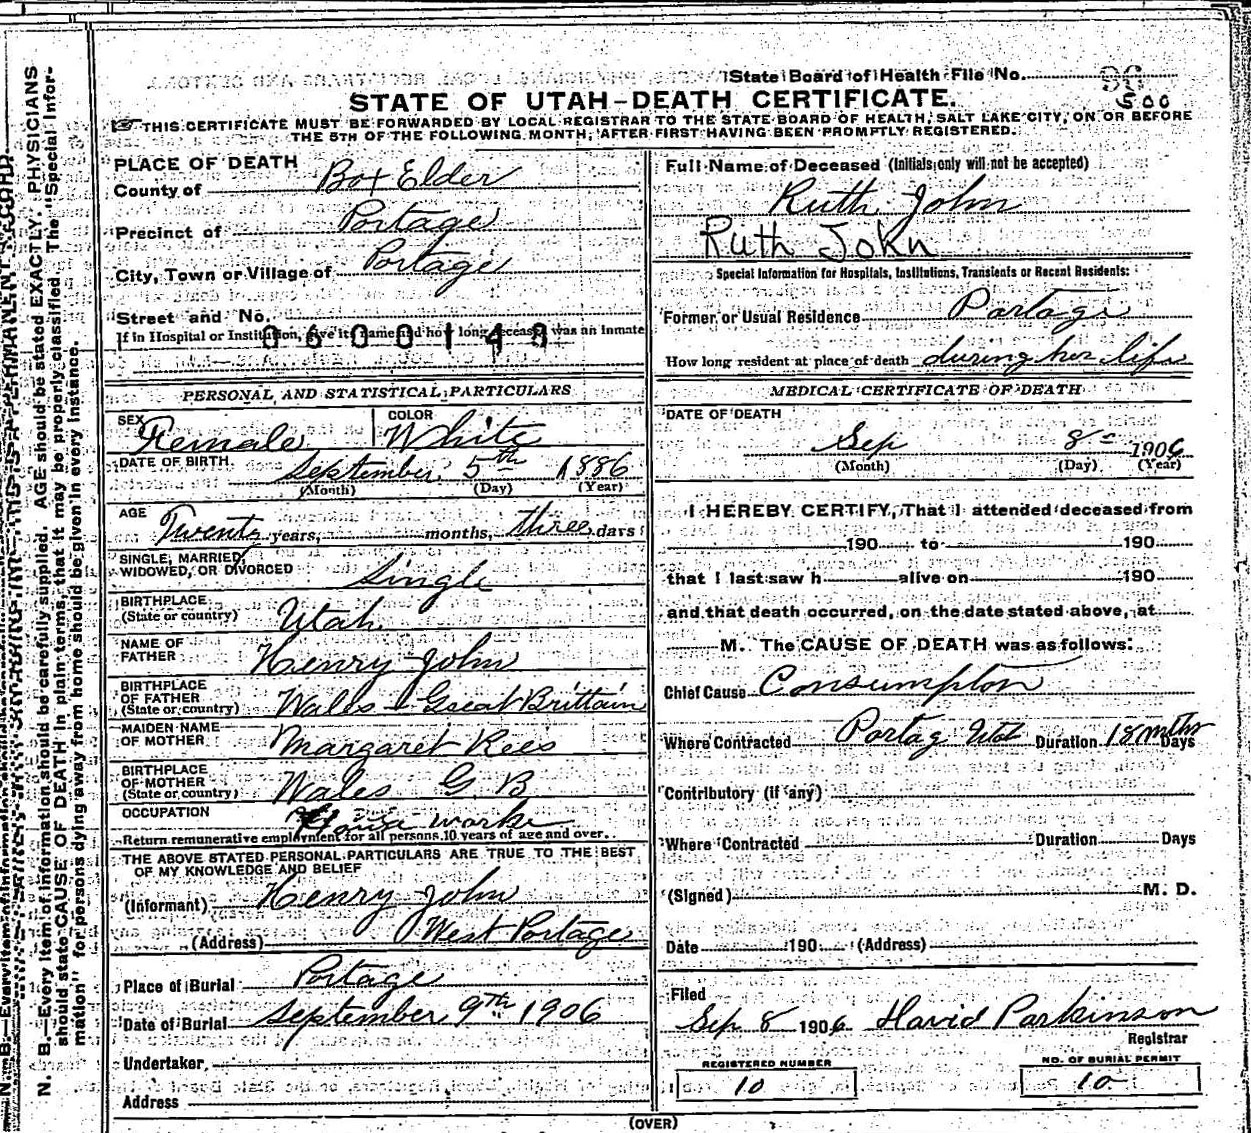 State Board of Health File No.
500
STATE OF UTAH-DEATH CERTIFICATE.
THIS CERTIFICATE MUST BE FORWARDED BY LOCAL REGISTRAR TO THE STATE BOARD OF HEALTH, SALT LAKE CITY, ON OR BEFORE
THE 5TH OF THE FOLLOWING MONTH, AFTER FIRST HAVING BEEN PROMPTLY REGISTERED.
PLACE OF DEATH
County of Box Elder
Precinct of Portage
City, Town or Village of Portage
Street and No.
If in Hospital or Institution, give its name and how long deceased was an Inmate
0600148
Full Name of Deceased (Initials only will not be accepted)
Ruth John
Ruth John
Special Information for Hospitals, Institutions, Transients or Recent Residents:
Former or Usual Residence Portage
How long resident at place of death during her life
PERSONAL AND STATISTICAL PARTICULARS
SEX Female COLOR White
DATE OF BIRTH September 5th 1886
(Month) (Day) (Year)
AGE Twenty years, months, three days
SINGLE, MARRIED,
WIDOWED, OR DIVORCED Single
BIRTHPLACE
(State or country) Utah
NAME OF
FATHER Henry John
BIRTHPLACE
OF FATHER
(State or country) Wales Great Brittain
MAIDEN NAME
OF MOTHER Margaret Rees
BIRTHPLACE
OF MOTHER
(State or country) Wales G. B
OCCUPATION House worke
Return remunerative employment for all persons 10 years of age and over.
THE ABOVE STATED PERSONAL PARTICULARS ARE TRUE TO THE BEST
OF MY KNOWLEDGE AND BELIEF
(Informant) Henry John
(Address) West Portage
Place of Burial Portage
Date of Burial September 9th 1906
Undertaker
Address
MEDICAL CERTIFICATE OF DEATH
DATE OF DEATH
Sep 8 1906
(Month) (Day) (Year)
I HEREBY CERTIFY, That I attended deceased from
190 to 190
that I last saw h alive on 190
and that death occurred, on the date stated above, at
M. The CAUSE OF DEATH was as follows:
Chief Cause Consumpton
Where Contracted Portag Utah Duration 18 mths Days
Contributory (if any)
Where Contracted Duration Days
(Signed) M. D.
Date 190 (Address)
Filed
Sep 8 1906 David Parkinson
Registrar
REGISTERED NUMBER
10
NO. OF BURIAL PERMIT
10
(OVER)
N. B.—Every item of information should be carefully supplied. AGE should be stated EXACTLY. PHYSICIANS
should state CAUSE OF DEATH in plain terms, that it may be properly classified. The "Special Infor-
mation" for persons dying away from home should be given in every instance.